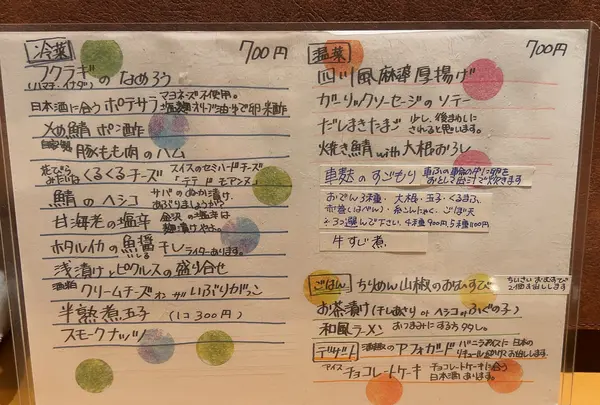 冷菜 700円
フクラギのなめろう
(ハマチ・イナダ)
日本酒に合うポテサラ マヨネーズ不使用。
塩麹 オリーブ油 牛で卵・米酢
〆め鯖 ポン酢
自家製 豚もも肉のハム
花びらみたいな くるくるチーズ スイスのセミハードチーズ
「テテ ド モアンヌ」
鯖のヘシコ サバのぬか漬け。
あぶりましょうか?
甘海老の塩辛 金沢の塩辛は
ホタルイカの魚醤干し ライターあります。
いしる
浅漬けとピクルスの盛り合せ
酒粕 クリームチーズ いぶりがっこ
半熟煮玉子 (1コ300円)
スモークナッツ
温菜 700円
四川風麻婆厚揚げ
ガーリックソーセージのソテー
だしまきたまご 少し、後まわしに
されると思います。
焼き鯖with大根おろし
車麩のすごもり 車ふの車輪の中に卵を
おとして出汁で炊きます
おでん3種・大根・玉子・くるまふ
赤巻(はべん)・糸こんにゃく・ごぼ天
3つ選んで下さい。4種900円 5種1100円
牛すじ煮
ごはん ちりめん山椒のおむすび ちいさいおむすび
2個お出しします
お茶漬け(ちしぼり or ヘシコ or ふぐの子)
和風ラーメン おつまみにするもヨシ。
デザート 酒粕のアフォガード バニラアイスに日本の
リキュールをかけてお出しします。
アイス チョコレートケーキ チョコレートケーキに合う
日本酒あります。